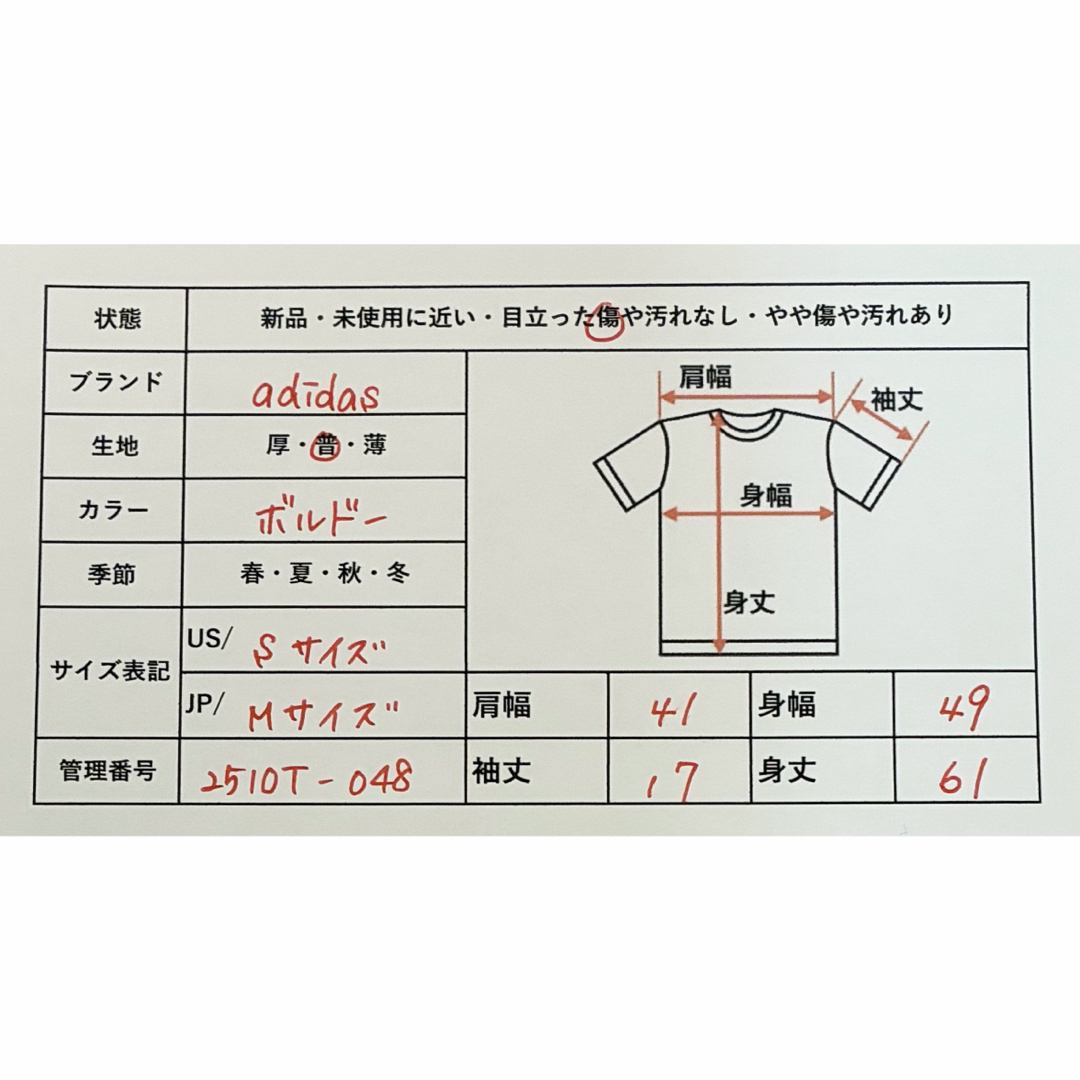 状態 新品・未使用に近い・目立った傷や汚れなし・やや傷や汚れあり
ブランド adidas
生地 厚・普・薄
カラー ボルドー
季節 春・夏・秋・冬
肩幅
袖丈
身幅
身丈
サイズ表記 US/ Sサイズ
JP/ Mサイズ 肩幅 41 身幅 49
管理番号 2510T-048 袖丈 17 身丈 61